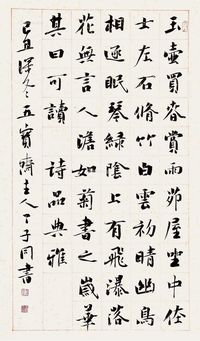 玉壺買春賞雨茆屋坐中佳
士左右脩竹白雲初晴幽鳥
相逐眠琴綠陰上有飛瀑落
花無言人澹如菊書之歲華
其曰可讀 詩品典雅
己丑深冬五寶齋主人丁子同書